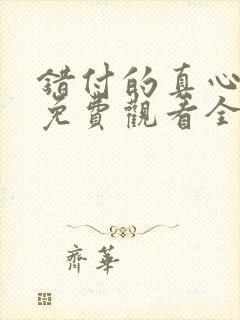 錯付的真心
免費觀看全
齊華